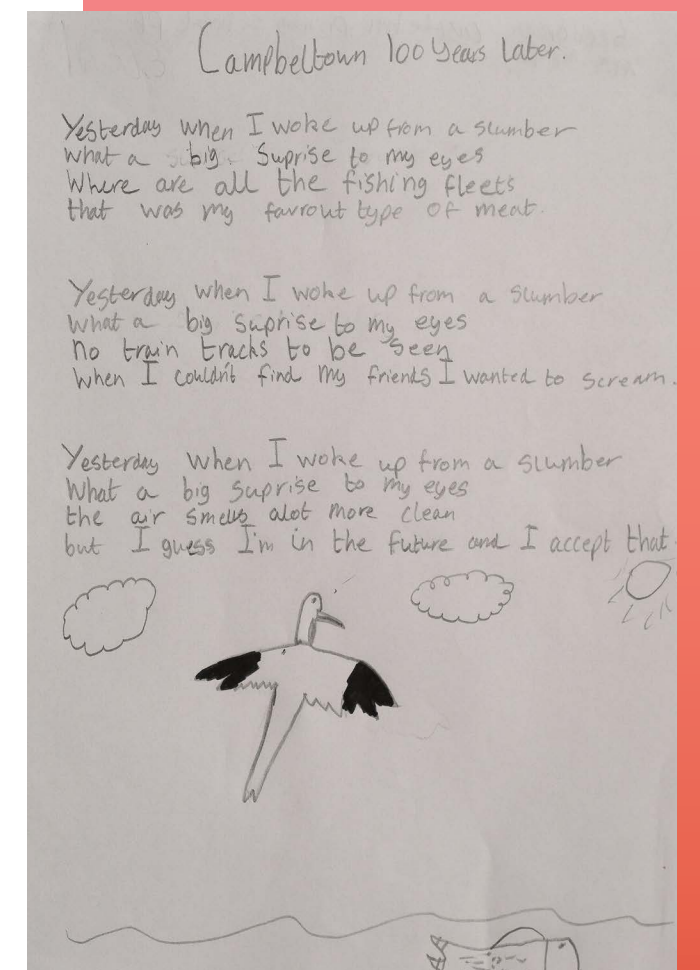 Campbeltown 100 Years Later.
Yesterday when I woke up from a slumber
what a big suprise to my eyes
Where are all the fishing fleets
that was my favrout type of meat.
Yesterday when I woke up from a slumber
What a big suprise to my eyes
no train tracks to be seen
When I couldn't find my friends I wanted to scream.
Yesterday when I woke up from a slumber
What a big suprise to my eyes
the air smells alot more clean
but I guess I'm in the future and I accept that